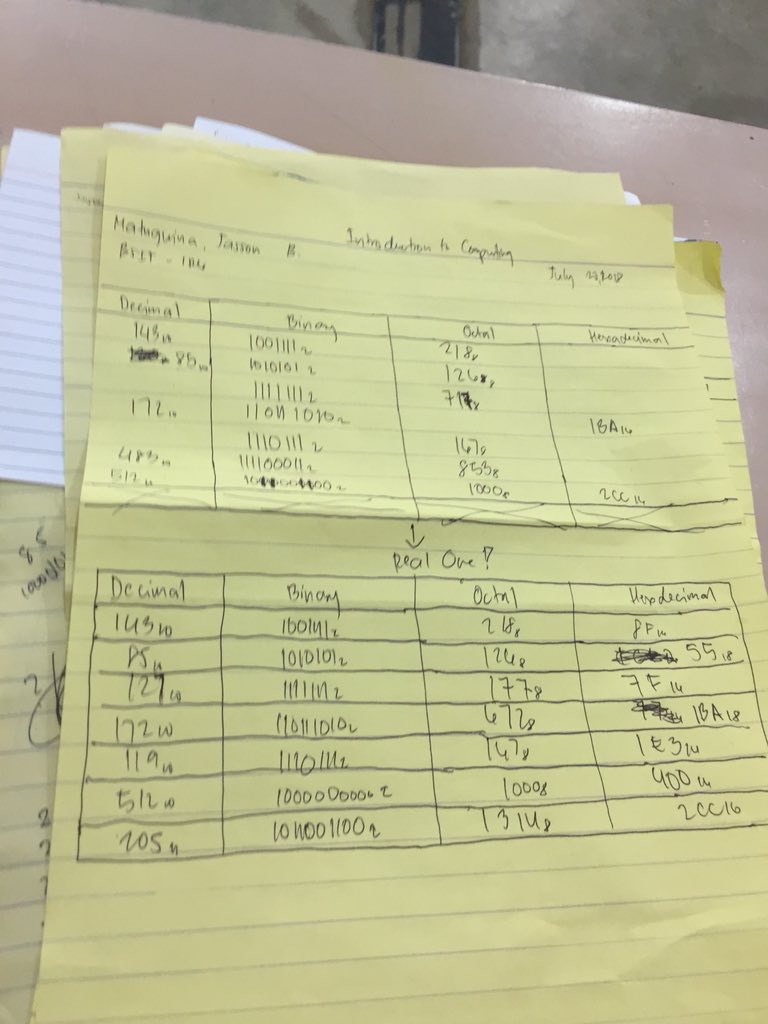 Matuguina, Jasson B. Introduction to Computing
July 23, 2018
Decimal Binary Octal Hexadecimal
143₁₀ 1001111₂ 218₈
85₁₀ 1010101₂ 126₈
1111111₂
172₁₀ 110111010₂ 1BA₁₆
1110111₂ 167₈
483₁₀ 111100011₂ 853₈
512₁₀ 1000₈ 2CC₁₆
Real One?
Decimal Binary Octal Hexdecimal
143₁₀ 218₈ 8F₁₆
85₁₀ 1010101₂ 126₈ 55₁₆
127₁₀ 1111111₂ 177₈ 7F₁₆
172₁₀ 110111010₂ 672₈ 1BA₁₆
119₁₀ 1110111₂ 167₈ 1E3₁₆
512₁₀ 1000000000₂ 1000₈ 400₁₆
205₁₀ 1011001100₂ 1314₈ 2CC16
85